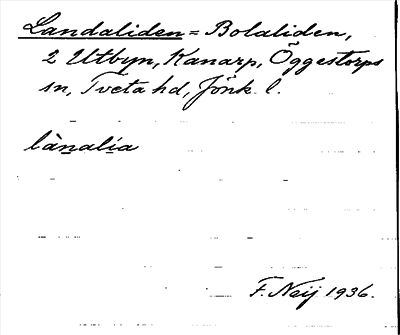 Landaliden = Bolaliden,
2 Utbyn, Kanarp, Öggestorps
sn, Tveta hd, Jönk. l.
là̱nali̱a
F. Neij 1936.